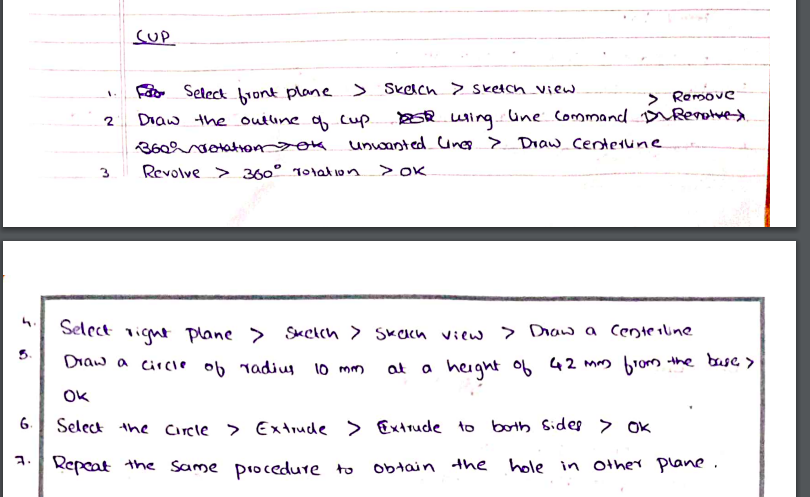 CUP
1. Select front plane > Sketch > Sketch view
2 Draw the outline of cup using line command > Remove
unwanted lines > Draw centerline
3 Revolve > 360° rotation > OK
4. Select right plane > Sketch > Sketch view > Draw a centerline
5. Draw a circle of radius 10 mm at a height of 42 mm from the base >
OK
6. Select the circle > Extrude > Extrude to both sides > OK
7. Repeat the same procedure to obtain the hole in other plane.